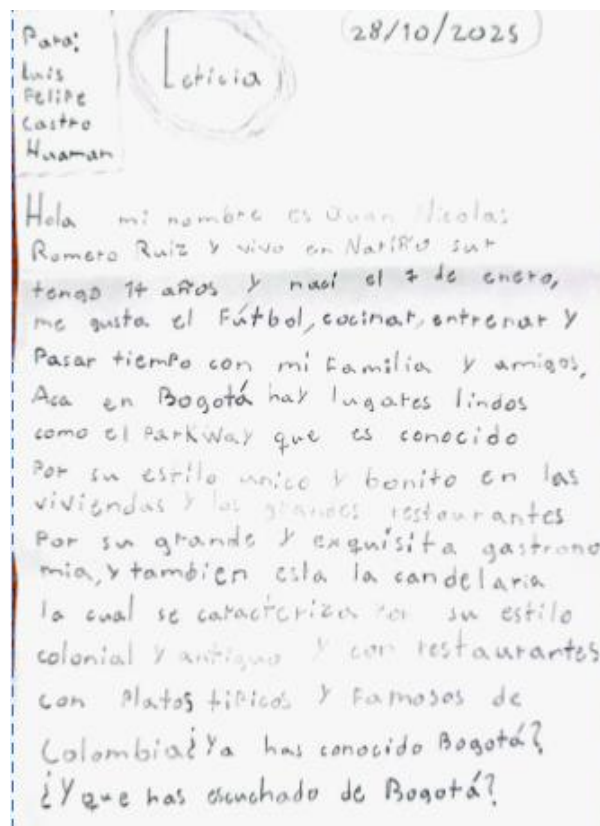 Para:
Luis
Felipe
Castro
Huaman
Leticia
28/10/2025
Hola mi nombre es Juan Nicolas
Romero Ruiz y vivo en Nariño sur
tengo 14 años y naci el 7 de enero,
me gusta el Fútbol, cocinar, entrenar y
Pasar tiempo con mi Familia y amigos,
Aca en Bogotá hay lugares lindos
como el Parkway que es conocido
Por su estilo unico y bonito en las
viviendas y los grandes restaurantes
Por su grande y exquisita gastrono
mia, y tambien esta la candelaria
la cual se caracteriza por su estilo
colonial y antiguo y con restaurantes
con Platos tipicos y Famosos de
Colombia ¿Ya has conocido Bogotá?
¿Y que has escuchado de Bogotá?